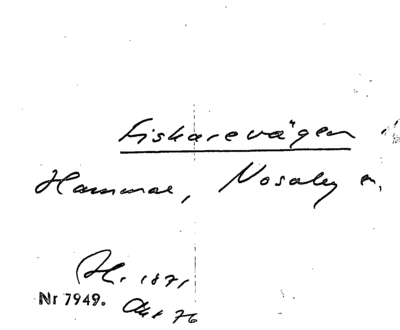 Fiskarevägen
Hammar, Nosaby sn.
H. 1871
Nr 7949.
Okt 76